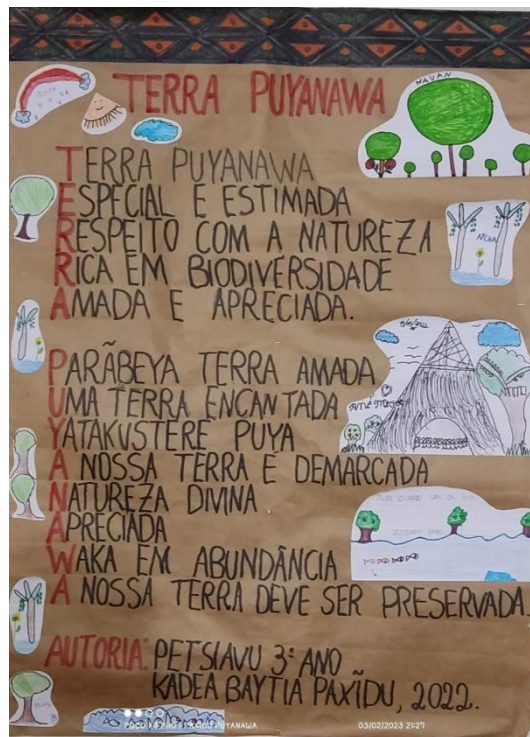 TERRA PUYANAWA
NAUAN
TERRA PUYANAWA
ESPECIAL E ESTIMADA
RESPEITO COM A NATUREZA
RICA EM BIODIVERSIDADE
AMADA E APRECIADA.
PARÃBEYA TERRA AMADA
UMA TERRA ENCANTADA
YATAKUSTERE PUYA
A NOSSA TERRA É DEMARCADA
NATUREZA DIVINA
APRECIADA
WAKA EM ABUNDÂNCIA
A NOSSA TERRA DEVE SER PRESERVADA.
AUTORIA: PETSIAVU 3º ANO
KADEA BAYTIA PAXĨDU, 2022.
03/02/2023 21:27